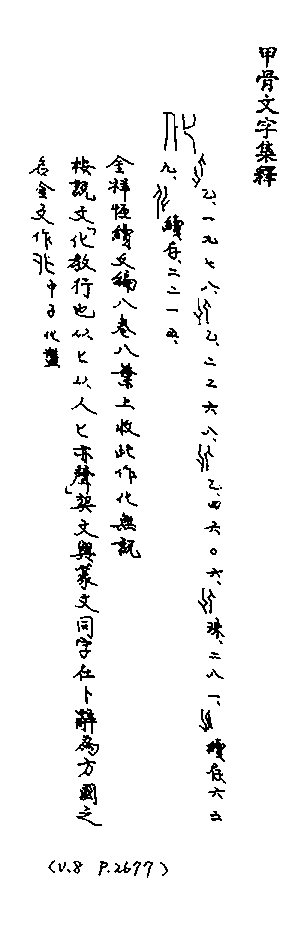 甲骨文字集釋
化 乙、一九七八、乙、二二六八、乙、四六〇六、珠、二八一、續存、六五
九、續存、二二一五、
金祥恆續文編八卷八葉上收此作化無說
按說文「化教行也从匕从人匕亦聲」契文與篆文同字在卜辭為方國之
名金文作 中子化盤
(V.8 P.2677)